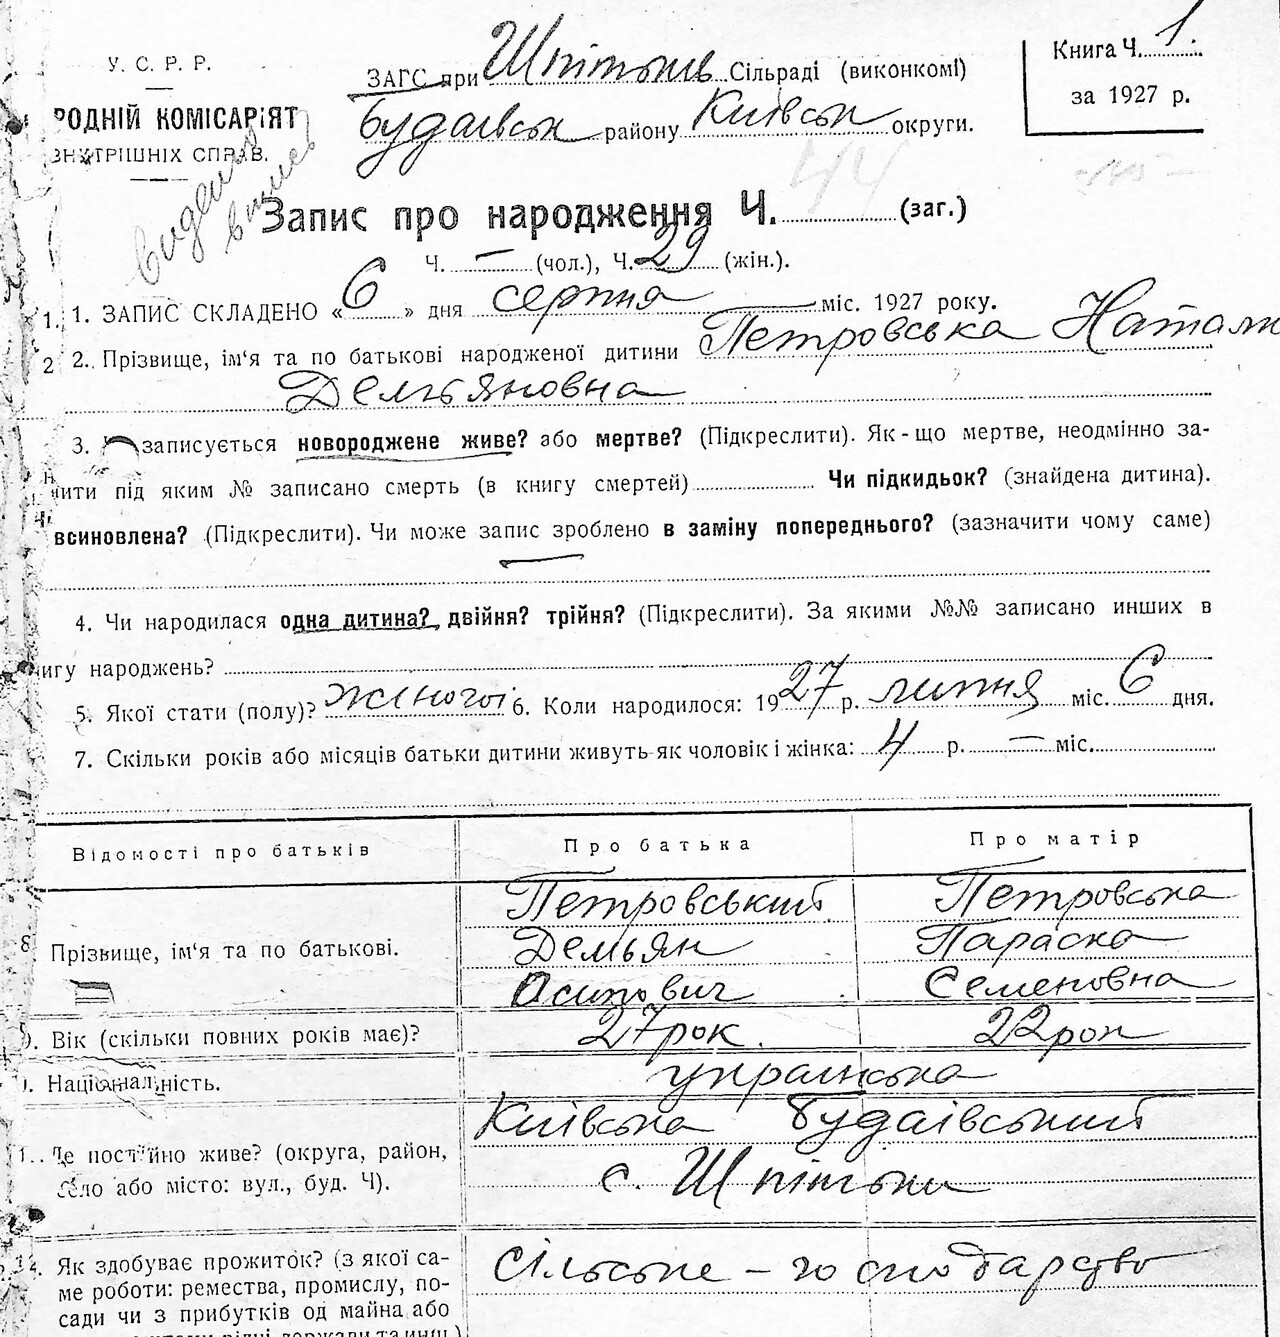 У. С. Р. Р.
РОДНІЙ КОМІСАРІЯТ
ВНУТРІШНІХ СПРАВ.
ЗАГС при Шпітьків Сільраді (виконкомі)
Будаівськ району Київськ округи.
Книга Ч. 1
за 1927 р.
видено
випись
44
Запис про народження Ч. (заг.)
Ч. — (чол.), Ч. 29 (жін.).
1. 1. ЗАПИС СКЛАДЕНО «6» дня серпня міс. 1927 року.
2 2. Прізвище, ім'я та по батькові народженої дитини Петровська Наталк
Демьяновна
3. записується новороджене живе? або мертве? (Підкреслити). Як-що мертве, неодмінно за-
чити під яким № записано смерть (в книгу смертей) Чи підкидьок? (знайдена дитина).
всиновлена? (Підкреслити). Чи може запис зроблено в заміну попереднього? (зазначити чому саме)
—
4. Чи народилася одна дитина? двійня? трійня? (Підкреслити). За якими №№ записано инших в
нигу народжень?
5. Якої стати (полу)? жіночоі 6. Коли народилося: 1927 р. липня міс. 6 дня.
7. Скільки років або місяців батьки дитини живуть як чоловік і жінка: 4 р. — міс.
Відомості про батьків Про батька Про матір
8. Прізвище, ім'я та по батькові. Петровський Петровська
Демьян Параска
Осипович Семеновна
). Вік (скільки повних років має)? 27 рок. 22 рок
). Національність. украінська
1. Де постійно живе? (округа, район, село або місто: вул., буд. Ч). Київська Будаівський
с. Шпітьки
12. Як здобуває прожиток? (з якої са- Сільське - господарство
ме роботи: ремества, промислу, по-
сади чи з прибутків од майна або